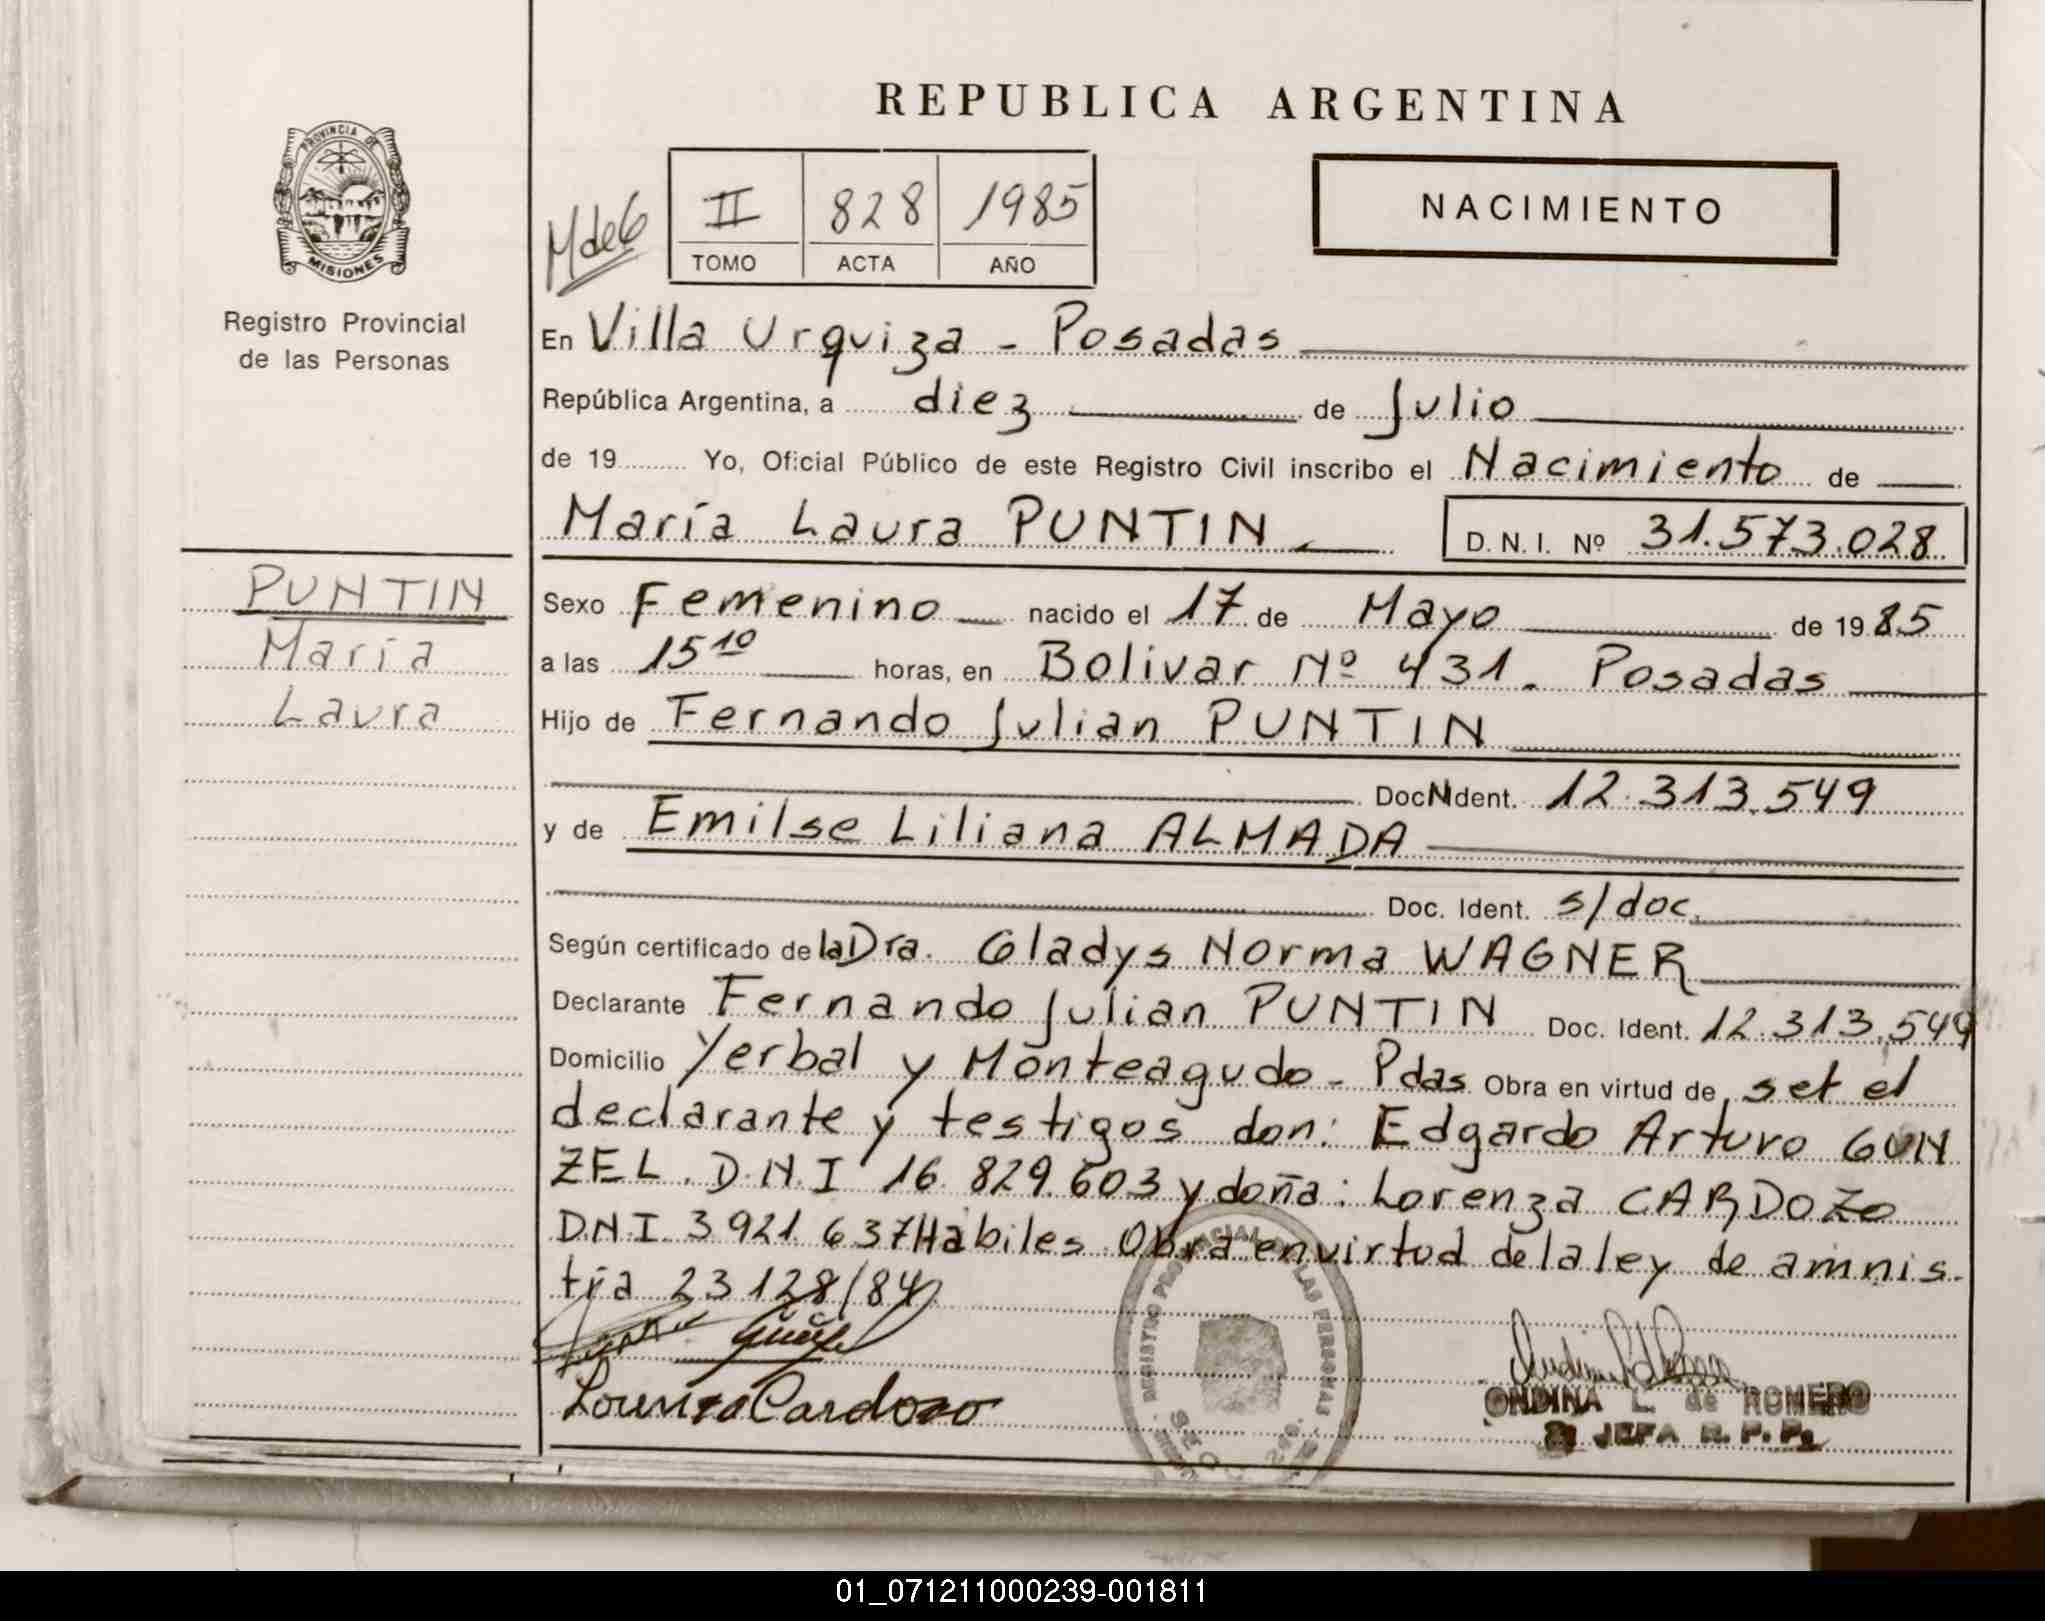 REPUBLICA ARGENTINA
PROVINCIA DE
MISIONES
Registro Provincial
de las Personas
II 828 1985
TOMO ACTA AÑO
NACIMIENTO
En Villa Urquiza - Posadas
República Argentina, a diez de Julio
de 19 Yo, Oficial Público de este Registro Civil inscribo el Nacimiento de
María Laura PUNTIN D.N.I. Nº 31.573.028
PUNTIN
María
Laura
Sexo Femenino nacido el 17 de Mayo de 1985
a las 15 10 horas, en Bolivar Nº 431. Posadas
Hijo de Fernando Julian PUNTIN
Doc Ndent. 12.313.549
y de Emilse Liliana ALMADA
Doc. Ident. s/doc.
Según certificado de la Dra. Gladys Norma WAGNER
Declarante Fernando Julian PUNTIN Doc. Ident. 12.313.549
Domicilio Yerbal y Monteagudo - Pdas Obra en virtud de set el
declarante y testigos don: Edgardo Arturo GUN
ZEL. D.N.I 16.829.603 y doña: Lorenza CARDOZO
D.N.I. 3921.637 Habiles. Obra en virtud de la ley de amnis.
tia 23128/84
Lorenza Cardozo
REGISTRO PROVINCIAL DE LAS PERSONAS
ONDINA L. de ROMERO
JEFA R. P. P.
01_071211000239-001811